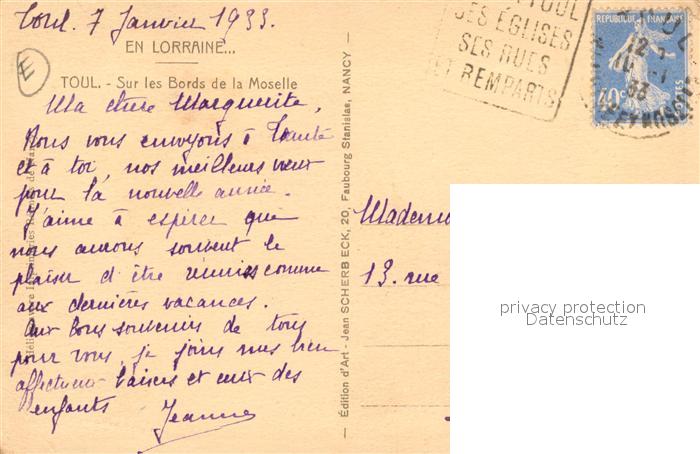 Toul. 7 Janvier 1933.
EN LORRAINE...
TOUL. - Sur les Bords de la Moselle
E
Ma chère Marguerite,
Nous vous envoyons à Tante
et à toi, nos meilleurs vœux
pour la nouvelle année.
J'aime à espérer que
nous aurons souvent le
plaisir d'être réunis comme
aux dernières vacances.
Aux bons souvenirs de tous
pour vous, je joins mes bien
affectueux baisers et ceux des
enfants Jeanne
Édition d'Art - Jean SCHERBECK, 20, Faubourg Stanislas, NANCY
TOUL
SES ÉGLISES
SES RUES
ET REMPARTS
REPUBLIQUE FRANÇAISE
40c
POSTES
Mademo
13. rue
privacy protection
Datenschutz